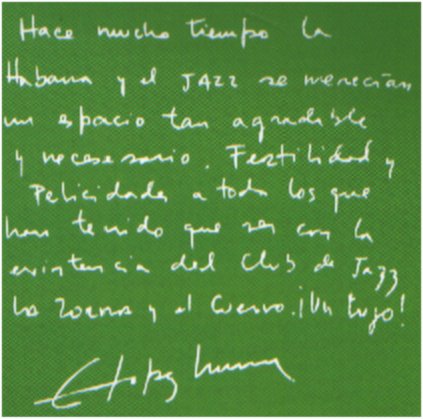 Hace mucho tiempo la
Habana y el JAZZ se merecían
un espacio tan agradable
y necesario. Fertilidad y
Felicidades a todos los que
han tenido que ver con la
existencia del Club de Jazz
La Zorra y el Cuervo. ¡Un lujo!